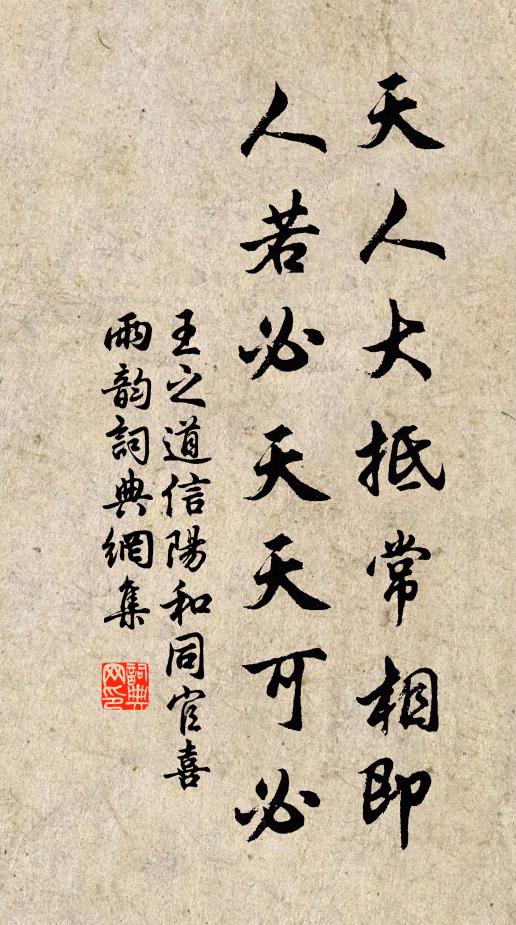 天人大抵常相即
人若必天天可必
王之道信陽和同官喜
雨韵詞典網集
詞典网印